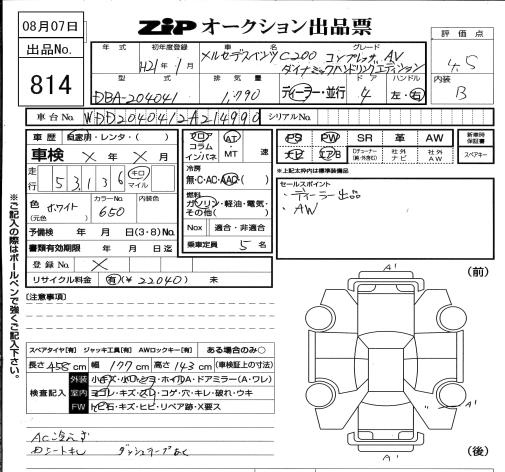 08月07日
出品No.
814
ZiP オークション出品票
評価点
4.5
内装
B
年式 初年度登録 車名 グレード
H21年1月 メルセデスベンツC200 コンプレッサー AV
ダイナミックハンドリングエディション
型式 排気量 ドア ハンドル
DBA-204041 1,790 ディーラー・並行 4 左・右
車台No. WDD2040412A214990 シリアルNo.
車歴 自家用・レンタ・( )
車検 × 年 × 月
走行 53,136 キロ マイル
色 (元色) ホワイト カラーNo. 650 内装色
予備検 年 月 日(3・8)No.
書類有効期限 年 月 日迄
登録No. ×
リサイクル料金 有(¥22040) 未
フロア コラム インパネ AT ・ MT 速
冷房
無・C・AC・AAC( )
燃料
ガソリン・軽油・電気・その他( )
Nox 適合・非適合
乗車定員 5 名
PS PW SR 革 AW
ナビ エアB 社外ナビ 社外AW
新車時保証書
スペアキー
*上記太枠内は標準装備品
セールスポイント
・ディーラー出品
・AW
[注意事項]
スペアタイヤ[有] ジャッキ工具[有] AWロックキー[有] ある場合のみ○
長さ 458 cm 幅 177 cm 高さ 143 cm (車検証上の寸法)
検査記入
外装 小キズ・小凹・シミ・ホイルA・ドアミラー(A・ワレ)
室内 ヨゴレ・キズ・スレ・コゲ・穴・キレ・破れ・ウキ
FW トビ石・キズ・ヒビ・リペア跡・X要ス
AC冷えず
※ご記入の際はボールペンで強くご記入下さい。
(前)
A1
A1
A1
(後)